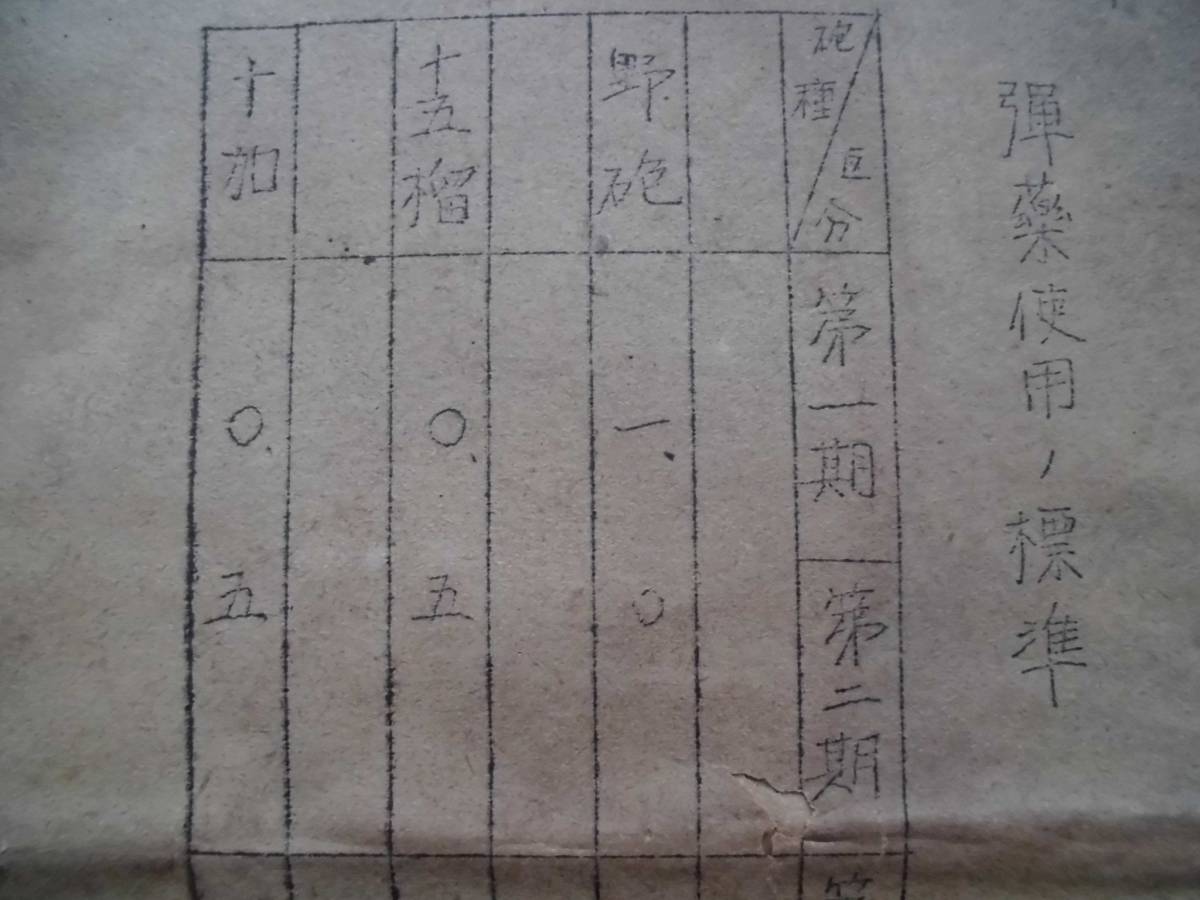 彈藥使用ノ標準
砲種
区分
第一期
第二期
野砲
一.〇
十五榴
〇.五
十加
〇.五